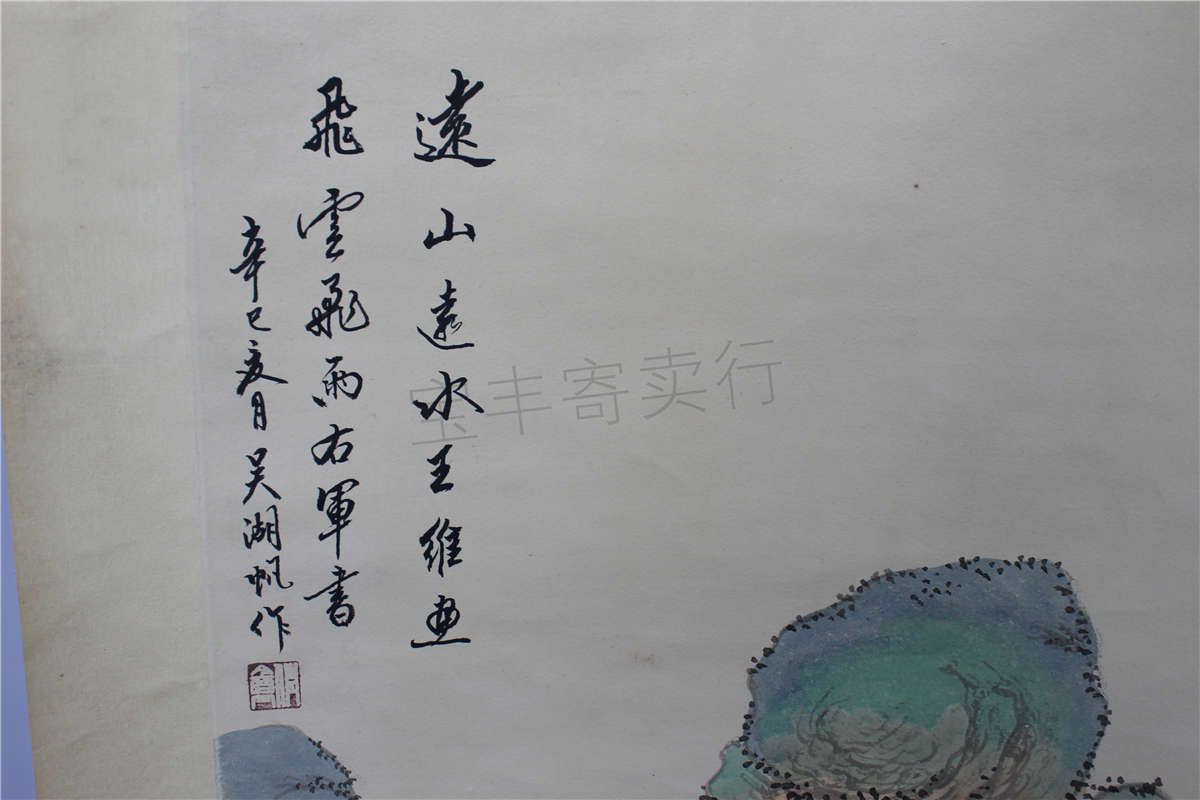 遠山遠水王維画
飛雲飛雨右軍書
辛巳夏月吴湖帆作
宝丰寄卖行